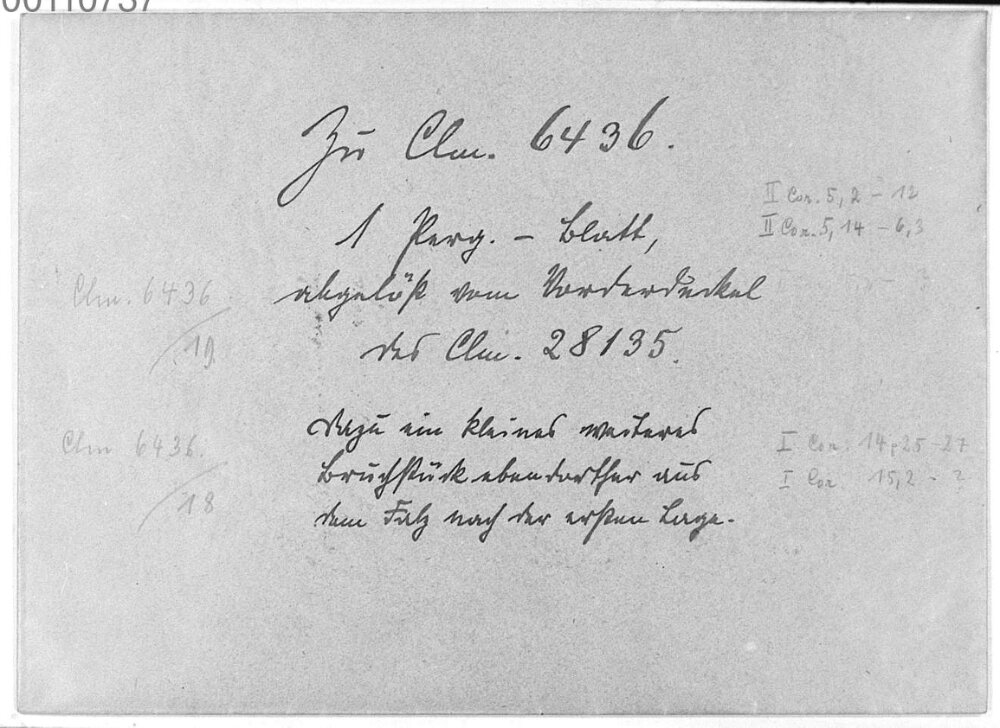 00110737
Zu Clm. 6436.
1 Perg. – Blatt,
abgelöst vom Vorderdeckel
des Clm. 28135.
Dazu ein kleines weiteres
Bruchstück ebendorther aus
dem Falz nach der ersten Lage.
Clm. 6436
/19
Clm 6436.
/18
II Cor. 5, 2 – 12
II Cor. 5, 14 – 6,3
I Cor 14, 25-27
I Cor. 15,2 - ?